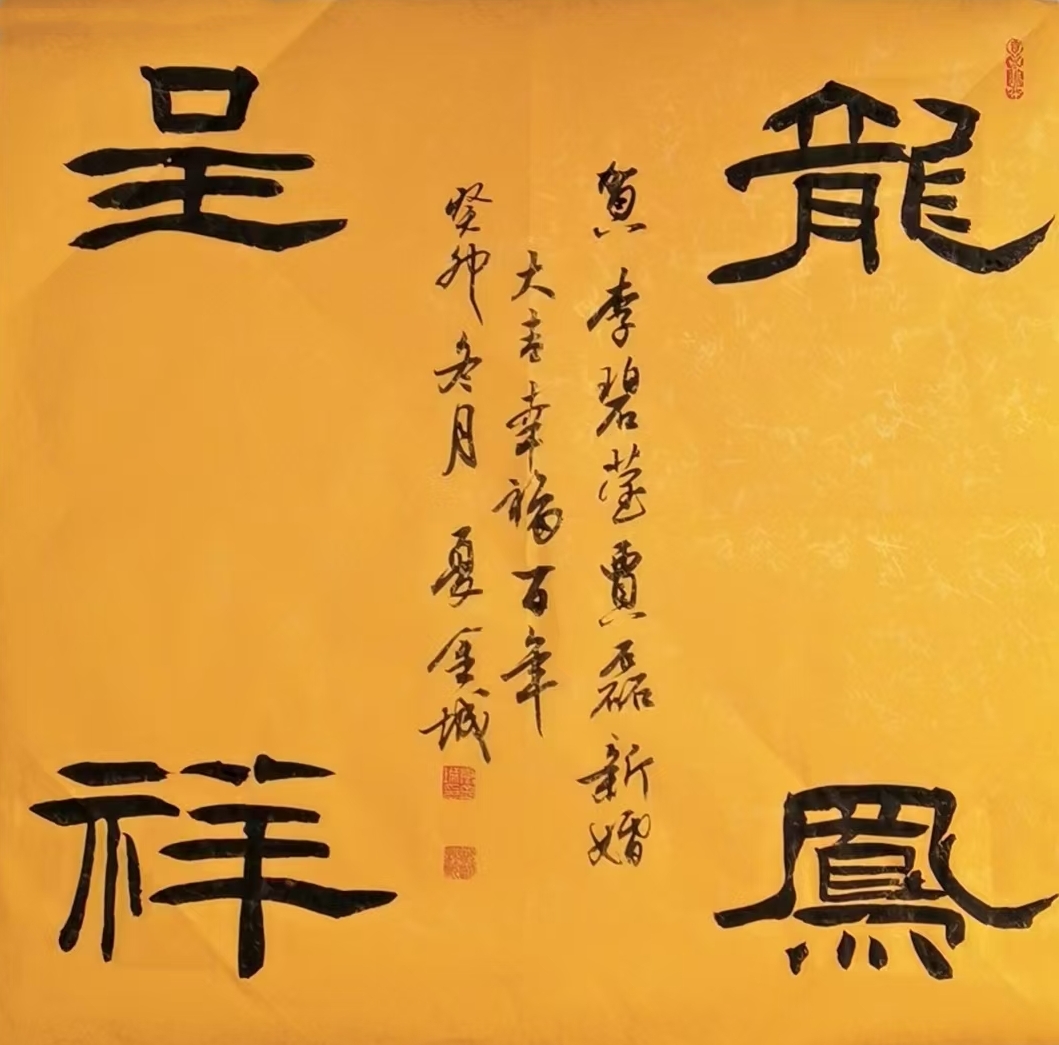 龍鳳
呈祥
賀李碧莹賈磊新婚
大喜幸福百年
癸卯冬月夏金城